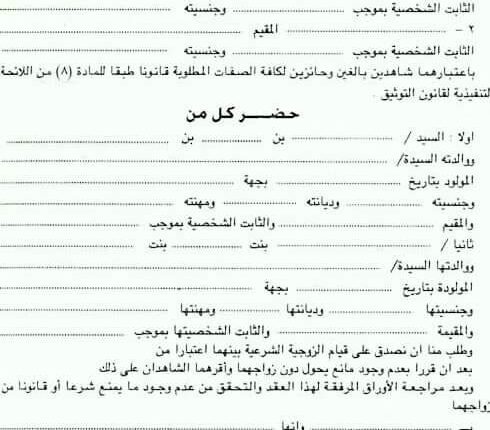 الثابت الشخصية بموجب ............ وجنسيته ............
٢ - ............ المقيم ............
الثابت الشخصية بموجب ............ وجنسيته ............
باعتبارهما شاهدين بالغين وحائزين لكافة الصفات المطلوبة قانونا طبقا للمادة (٨) من اللائحة
لتنفيذية لقانون التوثيق .
حضـــر كل من
اولا : السيد / ............ بن ............ بن ............
ووالدته السيدة/ ............
المولود بتاريخ ............ بجهة ............
وجنسيته ............ وديانته ............ ومهنته ............
والمقيم ............ والثابت الشخصية بموجب ............
ثانيا / ............ بنت ............ بنت ............
ووالدتها السيدة/ ............
المولودة بتاريخ ............ بجهة ............
وجنسيتها ............ وديانتها ............ ومهنتها ............
والمقيمة ............ والثابت الشخصيتها بموجب ............
وطلب منا ان نصدق على قيام الزوجية الشرعية بينهما اعتبارا من
بعد ان قررا بعدم وجود مانع يحول دون زواجهما وأقرهما الشاهدان على ذلك
وبعد مراجعة الأوراق المرفقة لهذا العقد والتحقق من عدم وجود ما يمنع شرعا أو قانونا من
زواجهما
............ وانها ............